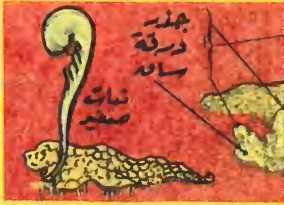 جذر
درقة
ساق
نبات
صغير